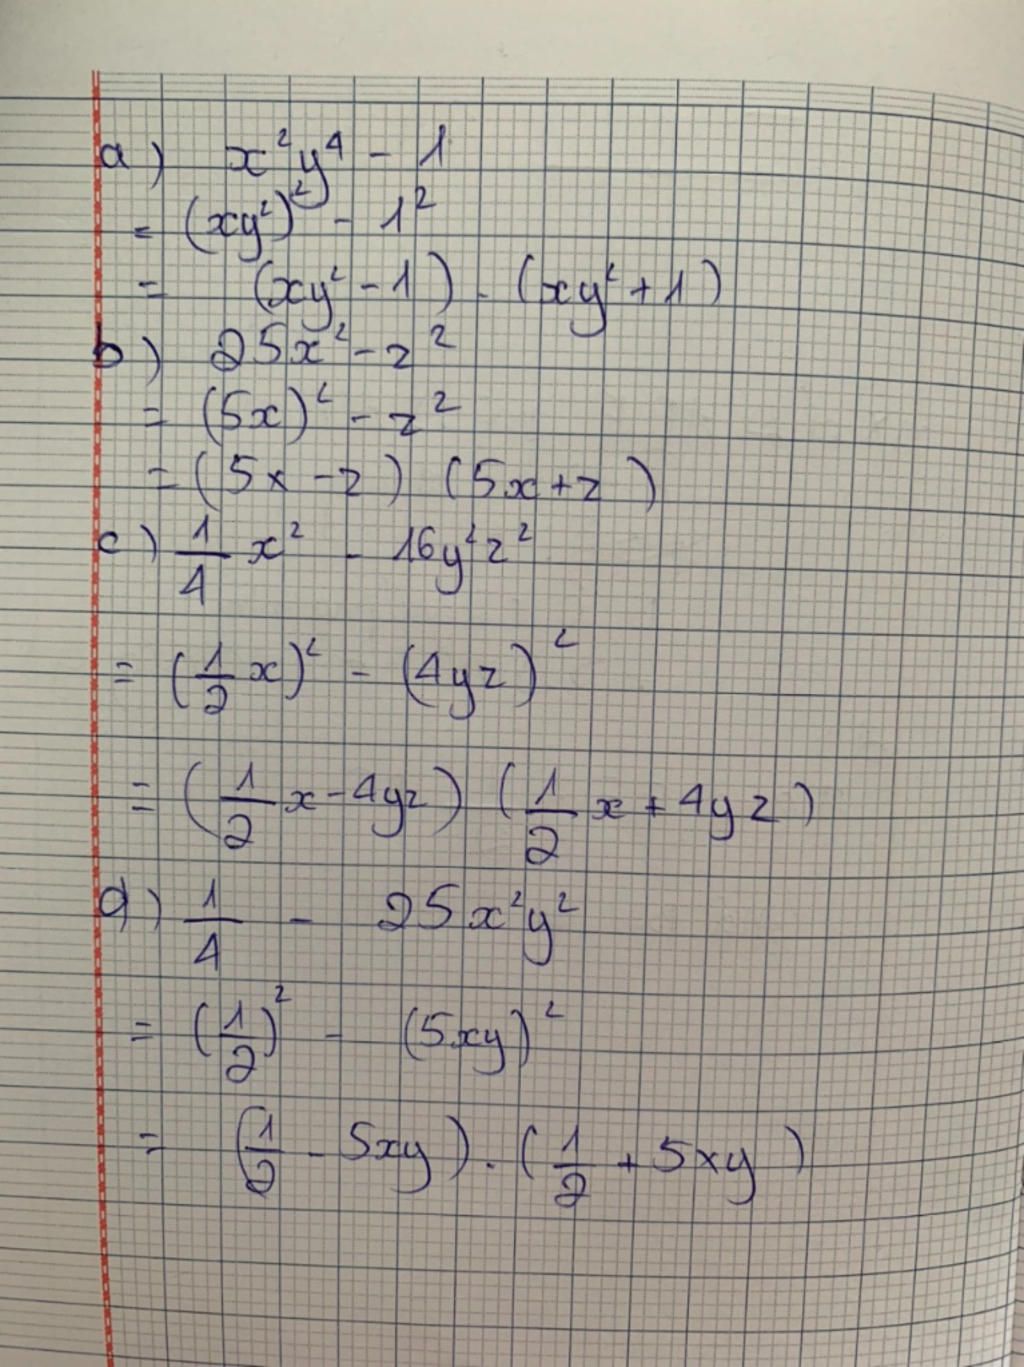 a) x²y⁴ - 1
= (xy²)² - 1²
= (xy² - 1) . (xy² + 1)
b) 25x² - z²
= (5x)² - z²
= (5x - z) (5x + z)
c) 1/4 x² - 16y²z²
= (1/2 x)² - (4yz)²
= (1/2 x - 4yz) (1/2 x + 4yz)
d) 1/4 - 25x²y²
= (1/2)² - (5xy)²
= (1/2 - 5xy) . (1/2 + 5xy)